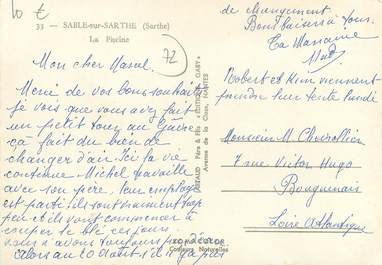 10 €
33 - SABLE-sur-SARTHE (Sarthe)
La Piscine
72
Mon cher Marcel.
Merci de vos bons souhaits
je vois que vous avez fait
un petit tour au Guâvre
ça fait du bien de
changer d'air. Ici la vie
continue Michel travaille
avec son père. Pour
est parti ils sont vraiment trop
peu et ils vont commencer à
couper le blé ces jours.
nous n'avons toujours
alors au 20 Août il n'y a plus
de changement.
Bons baisers à tous.
Ta Marraine
Robert et viennent
prendre leur Lundi
Monsieur M. Chevrollier
7 rue Victor Hugo
Bouguenais
Loire Atlantique
ARTAUD Père & Fils « EDITIONS GABY »
Avenue de la Close, NANTES
Couleurs Naturelles